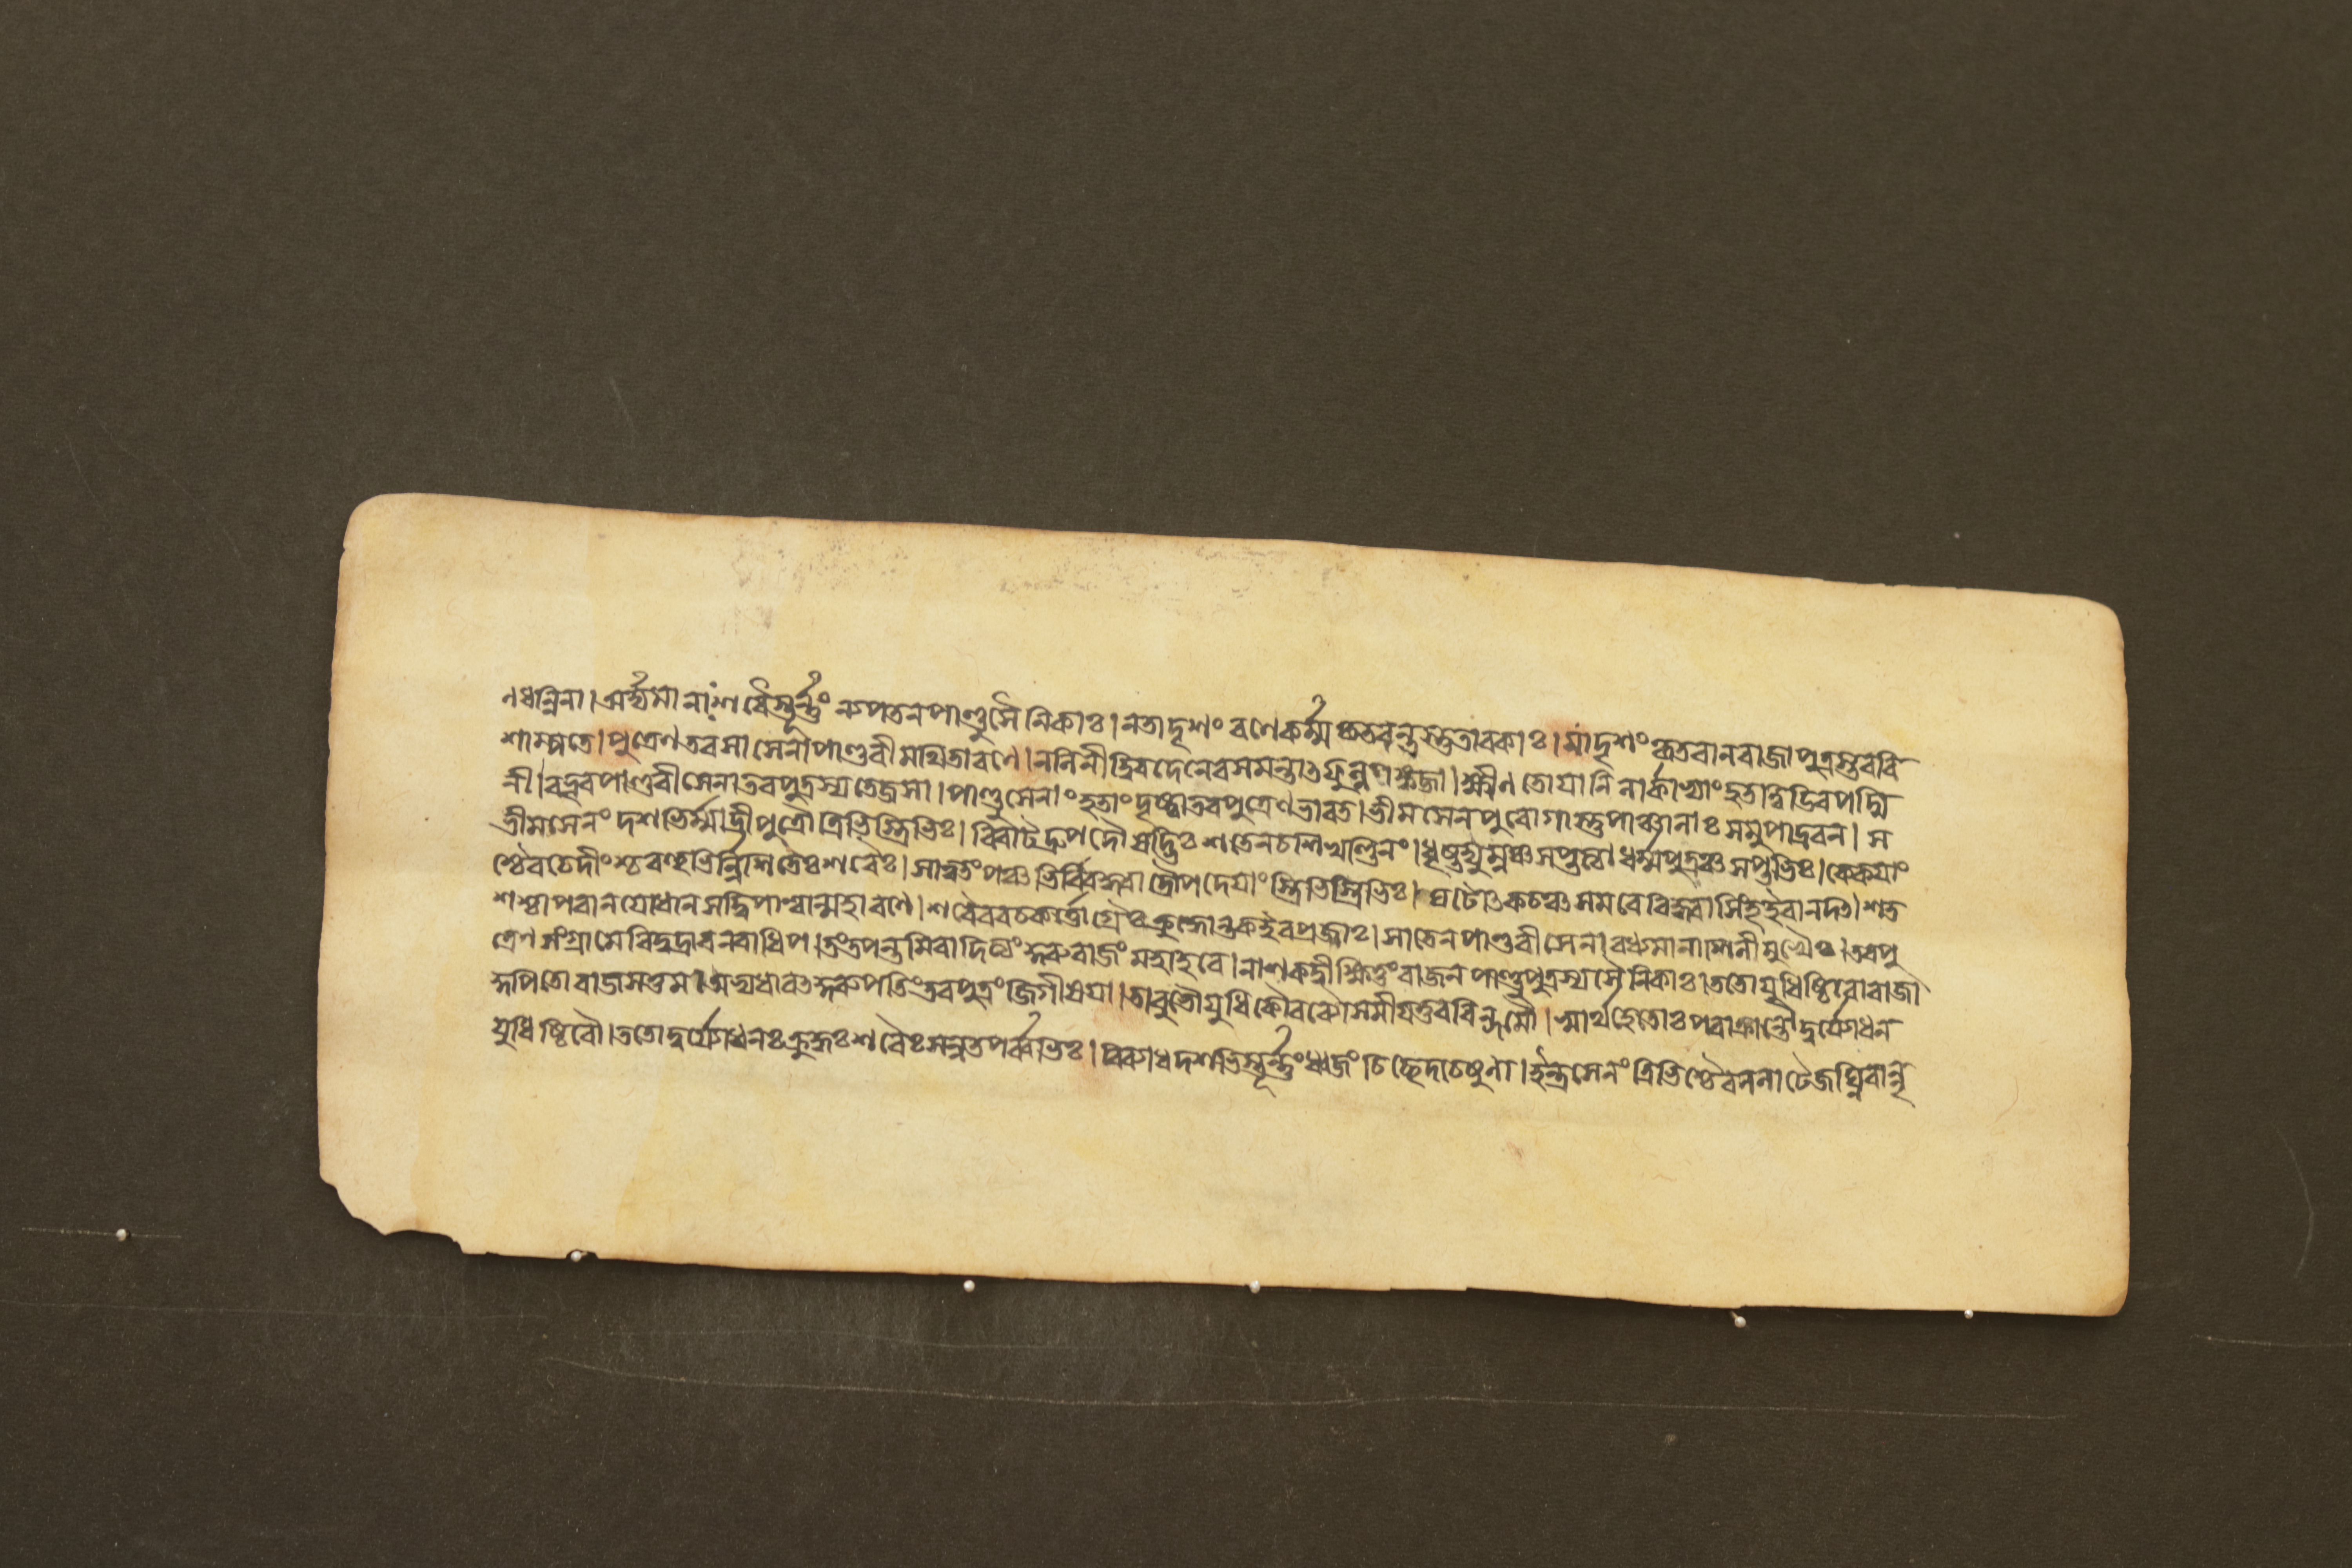 ণ ধন্বিনা । অর্দ্দ্যমানাঃ শরৈস্তূর্ণ্ণং ন্যপতন পাণ্ডুসৈনিকাঃ । নতাদৃশং রণে কর্ম্ম কৃতবন্তস্তু তাবকাঃ । যাদৃশং কৃতবান রাজা পুত্রস্তব বি
শাম্পতে । পুত্রেণ তব সা সেনা পাণ্ডবী মথিতা রণে । নলিনী দ্বিরদেনেব সমন্তাৎ ফুল্লপঙ্কজা । ক্ষীণতোয়ানিলার্কাভ্যাং হতত্বিড়িব পদ্মি
নী । বভূব পাণ্ডবী সেনা তব পুত্রস্য তেজসা । পাণ্ডুসেনাং হতাং দৃষ্ট্বা তব পুত্রেণ ভারত । ভীমসেনপুরোগাস্তু পাঞ্চালাঃ সমুপাদ্রবন । স
ভীমসেনং দশভির্ম্মাদ্রীপুত্রৌ ত্রিভিস্ত্রিভিঃ । বিরাটদ্রুপদৌ ষড্ভিঃ শতেন চ শিখণ্ডিনং । ধৃষ্টদ্যুম্নঞ্চ সপ্তত্যা ধর্ম্মপুত্রঞ্চ সপ্তভিঃ । কেকয়াং
শ্চৈব চেদীংশ্চ বহুভির্ন্নিশিতৈঃ শরৈঃ । সাত্বতং পঞ্চভির্ব্বিদ্ধ্বা দ্রৌপদেয়াংস্ত্রিভিস্ত্রিভিঃ । ঘটোৎকচঞ্চ সমরে বিদ্ধ্বা সিংহ ইবানদৎ । শত
শশ্চাপরান যোধান সদ্বিপাশ্বান্মহারণে । শরৈরবচকর্ত্তোগ্রৈঃ ক্রুদ্ধোন্তক ইব প্রজাঃ । সা তেন পাণ্ডবী সেনা বধ্যমানা শিলীমুখৈঃ । তব পু
ত্রেণ সংগ্রামে বিদুদ্রাব নরাধিপ । তং তপন্তমিবাদিত্যং কুরুরাজং মহাহবে । নাশকদ্বীক্ষিতুং রাজন পাণ্ডুপুত্রস্য সৈনিকাঃ । ততো যুধিষ্ঠিরো রাজা
কুপিতো রাজসত্তম । অভ্যধাবৎ কুরুপতিং তব পুত্রং জিগীষয়া । তাবুভৌ যুধি কৌরব্যৌ সমীয়তুররিন্দমৌ । স্বার্থহেতোঃ পরাক্রান্তৌ দুর্যোধন
যুধিষ্ঠিরৌ । ততো দুর্যোধনঃ ক্রুদ্ধঃ শরৈঃ সন্নতপর্ব্বভিঃ । বিব্যাধ দশভিস্তূর্ণ্ণং ধ্বজং চিচ্ছেদ চেষুণা । ইন্দ্রসেনং ত্রিভিশ্চৈব ললাটে জঘ্নিবান্নৃ